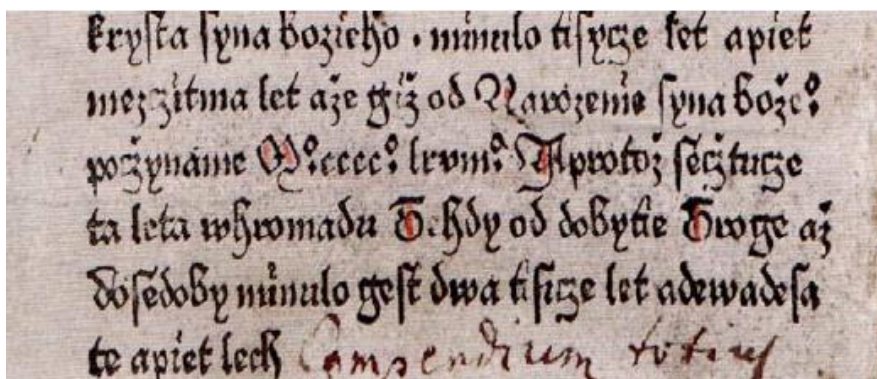 krysta syna bozieho · minulo tisycze let apiet
mezczitma let aže giž od Narozenie syna božeº
poczyname Mºccccº lxviiiº A protož sečztucze
ta leta whromadu Tehdy od dobytie Troge až
dosedoby minulo gest dwa tisicze let adewadesa
te apiet lech Compendium totius